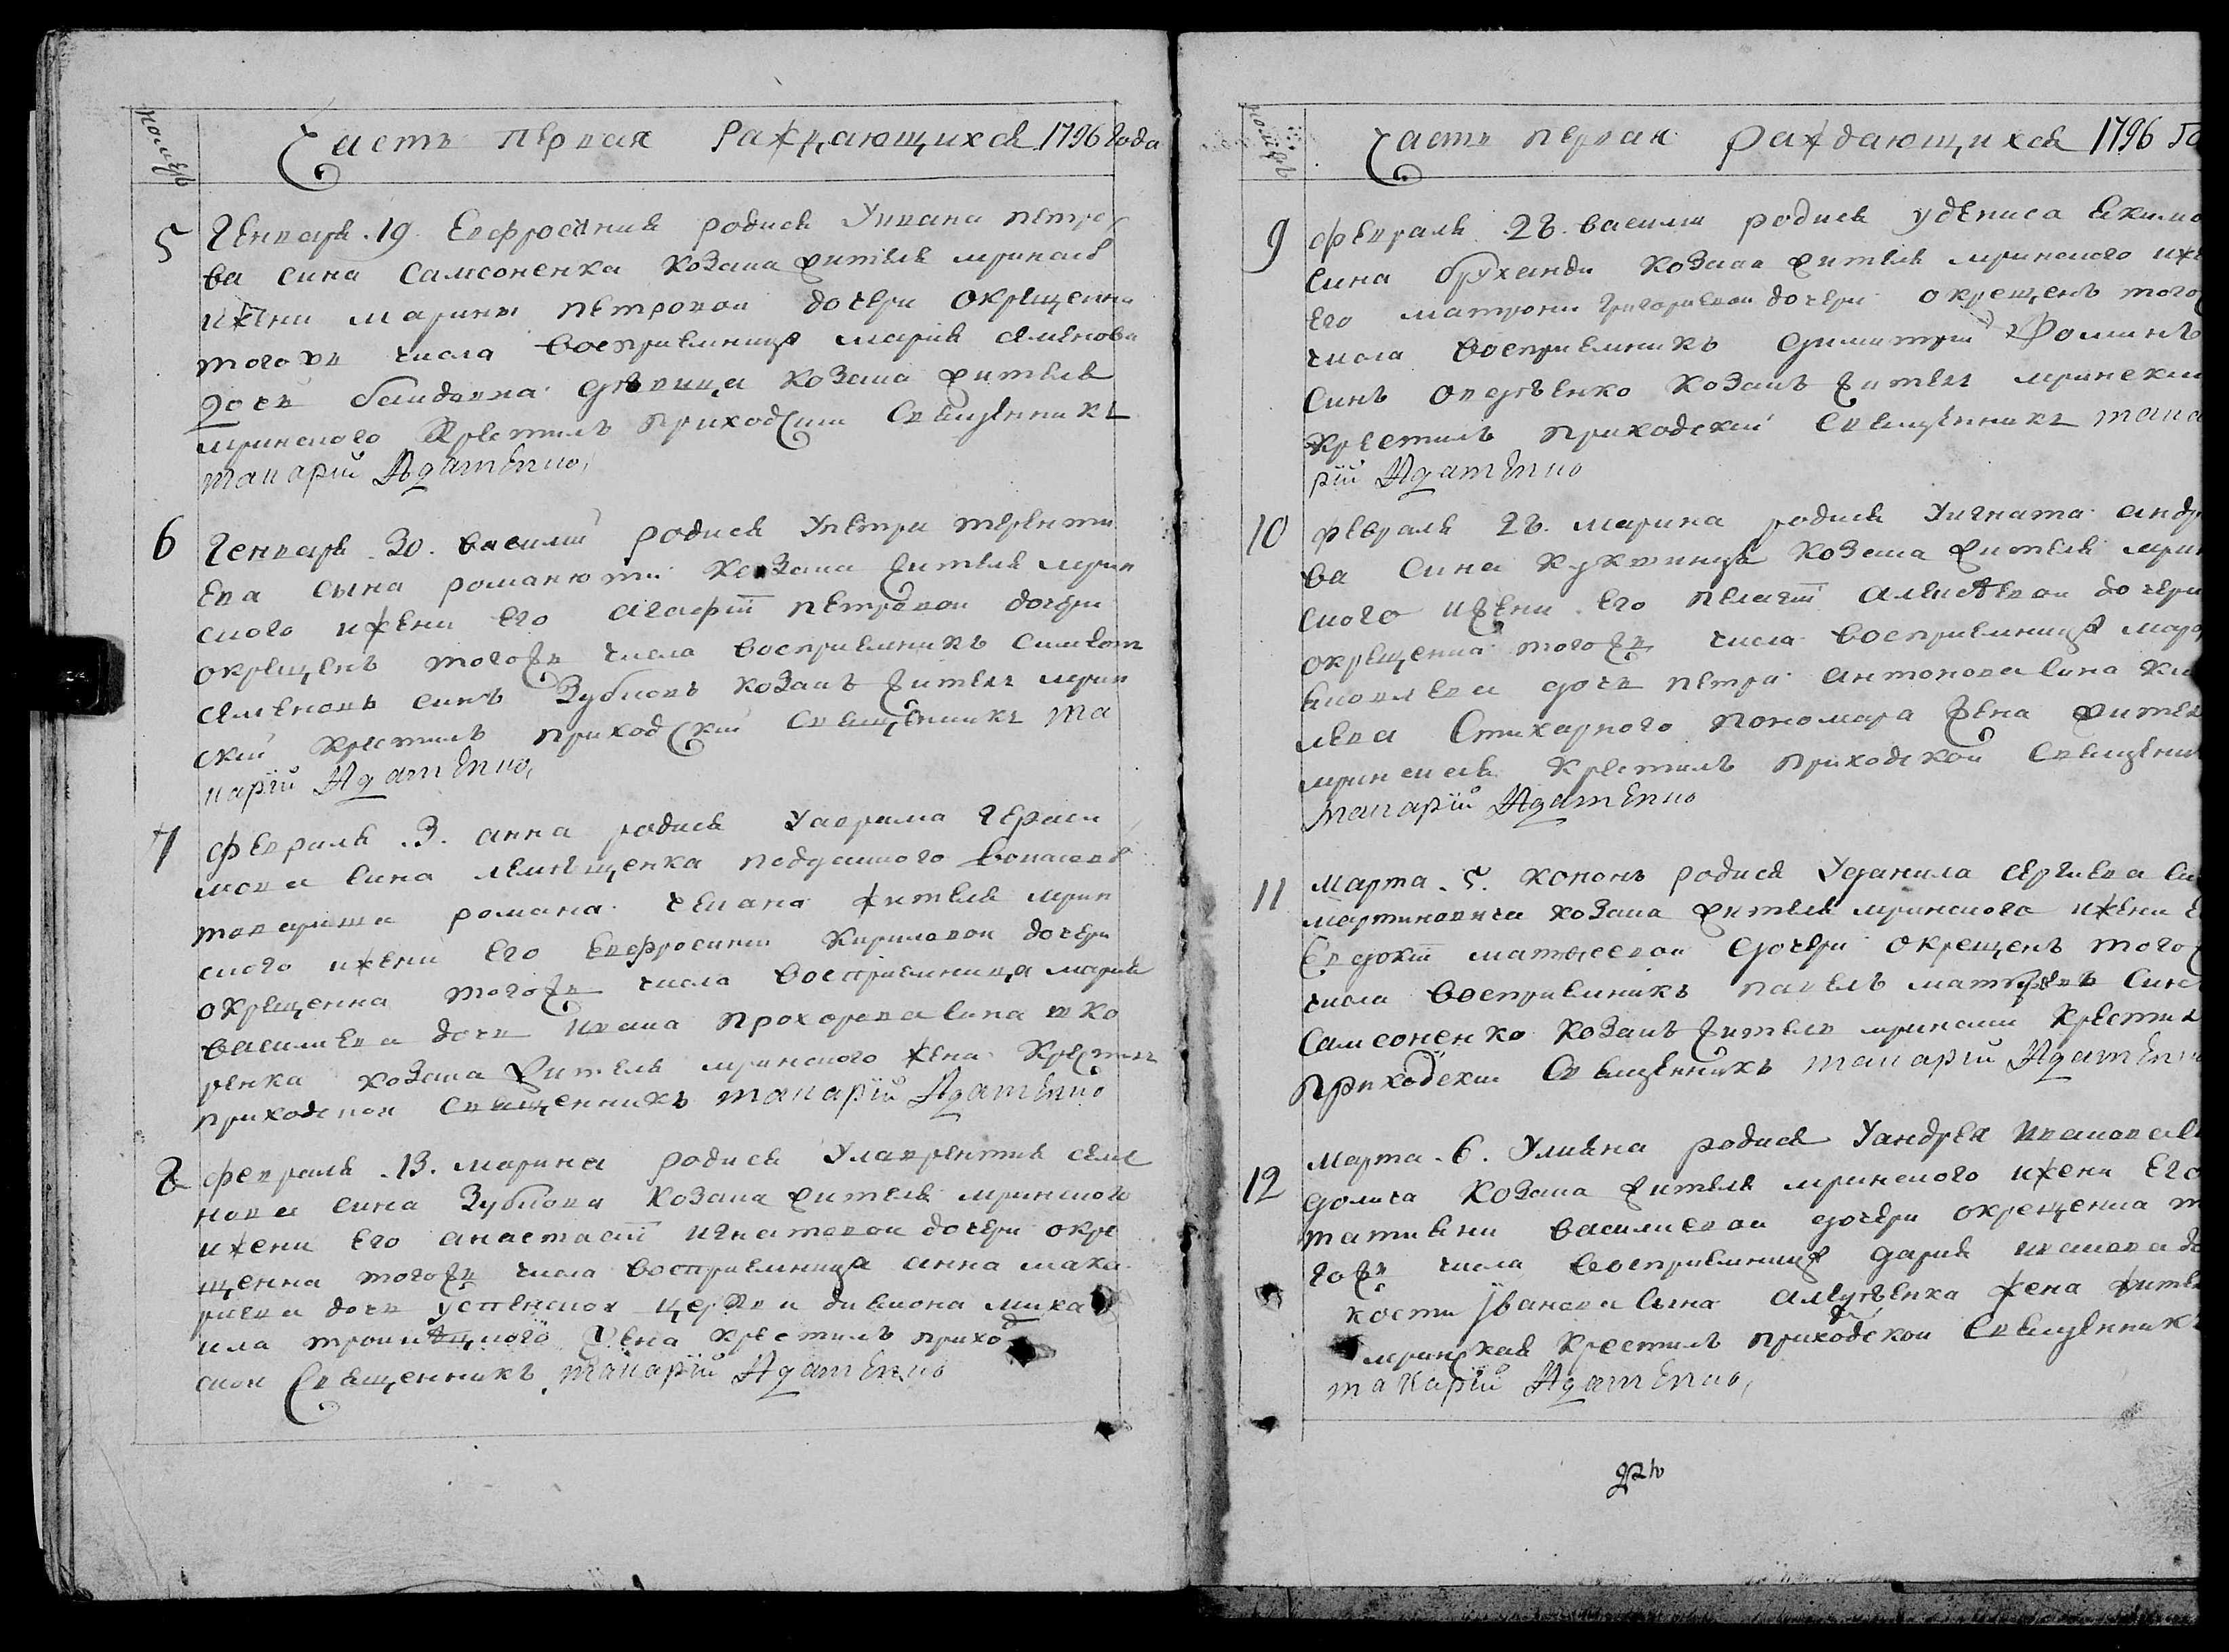 номеръ
Часть первая раждающихся 1796 года
5
Генваря 19 Евфросиния родися Уивана петро
ва сина Самсоненка козака жителя мринского
ижени марини петровои дочери окрещенна
тогоже числа восприемница мария семенова
дочь баидакна девица козака жителя
мринского крестилъ приходский священникъ
макарий Адаменко,
6
Генваря 30. василий родися Упетра теренти
ева сына романюти козака жителя мрин
ского ижени его агафии петровои дочери
окрещенъ тогоже числа восприемникъ симеон
семеновъ синъ Зубковъ козакъ житель мрин
ский крестилъ приходский священникъ ма
карий Адаменко,
7
февраля 3. анна родися Уаврама гераси
мова сина подданного
товариша романа жителя мрин
ского ижени его Евфросинии кириловои дочери
окрещенна тогоже числа восприемница мария
василиева дочь ивана прохорова сина шко
ренка козака жителя мринского жена крестилъ
приходской священникъ макарий Адаменко
8
февраля 13. марина родися Улаврентия семе
нова сина Зубкова козака жителя мринского
ижени его анастасии игнатовои дочери окре
щенна тогоже числа восприемница анна мака
риева дочь успенской церкви диакона миха
ила троицкого жена крестилъ прихо
ской священникъ макарий Адаменко
номеръ
Часть первая раждающихся 1796 го
9
февраля 28. василий родися удениса екимо
сина бруханди козака жителя мринского иже
его матрони григориевои дочери окрещенъ того
числа восприемникъ димитрий Фоминъ
синъ овдѣенко козакъ житель мринский
крестилъ приходский священникъ мака
рий Адаменко
10
февраля 28. марина родися Уигната андр
ва сина козака жителя мрин
ского ижени его пелагии алексѣевои дочери
окрещенна тогоже числа восприемница мар
яковлева дочь петра антонова сина
лева стихарного пономара жена жител
мринская крестилъ приходской священник
макарий Адаменко
11
марта 5. кононъ родися Уданила сергиева си
мартиновича козака жителя мринского ижени е
Евдокии матвеевои дочери окрещенъ того
числа восприемникъ павелъ матвеевъ синъ
Самсоненко козакъ житель мринский крестил
приходский священникъ макарий Адаменко
12
марта 6. Улияна родися Уандрея иванова
долита козака жителя мринского ижени его
татияни василиевои дочери окрещенна т
гоже числа восприемница дария иванова до
кости Іванова сына алеѯѣенка жена жител
мринская крестилъ приходской священникъ
макарий Адаменко,